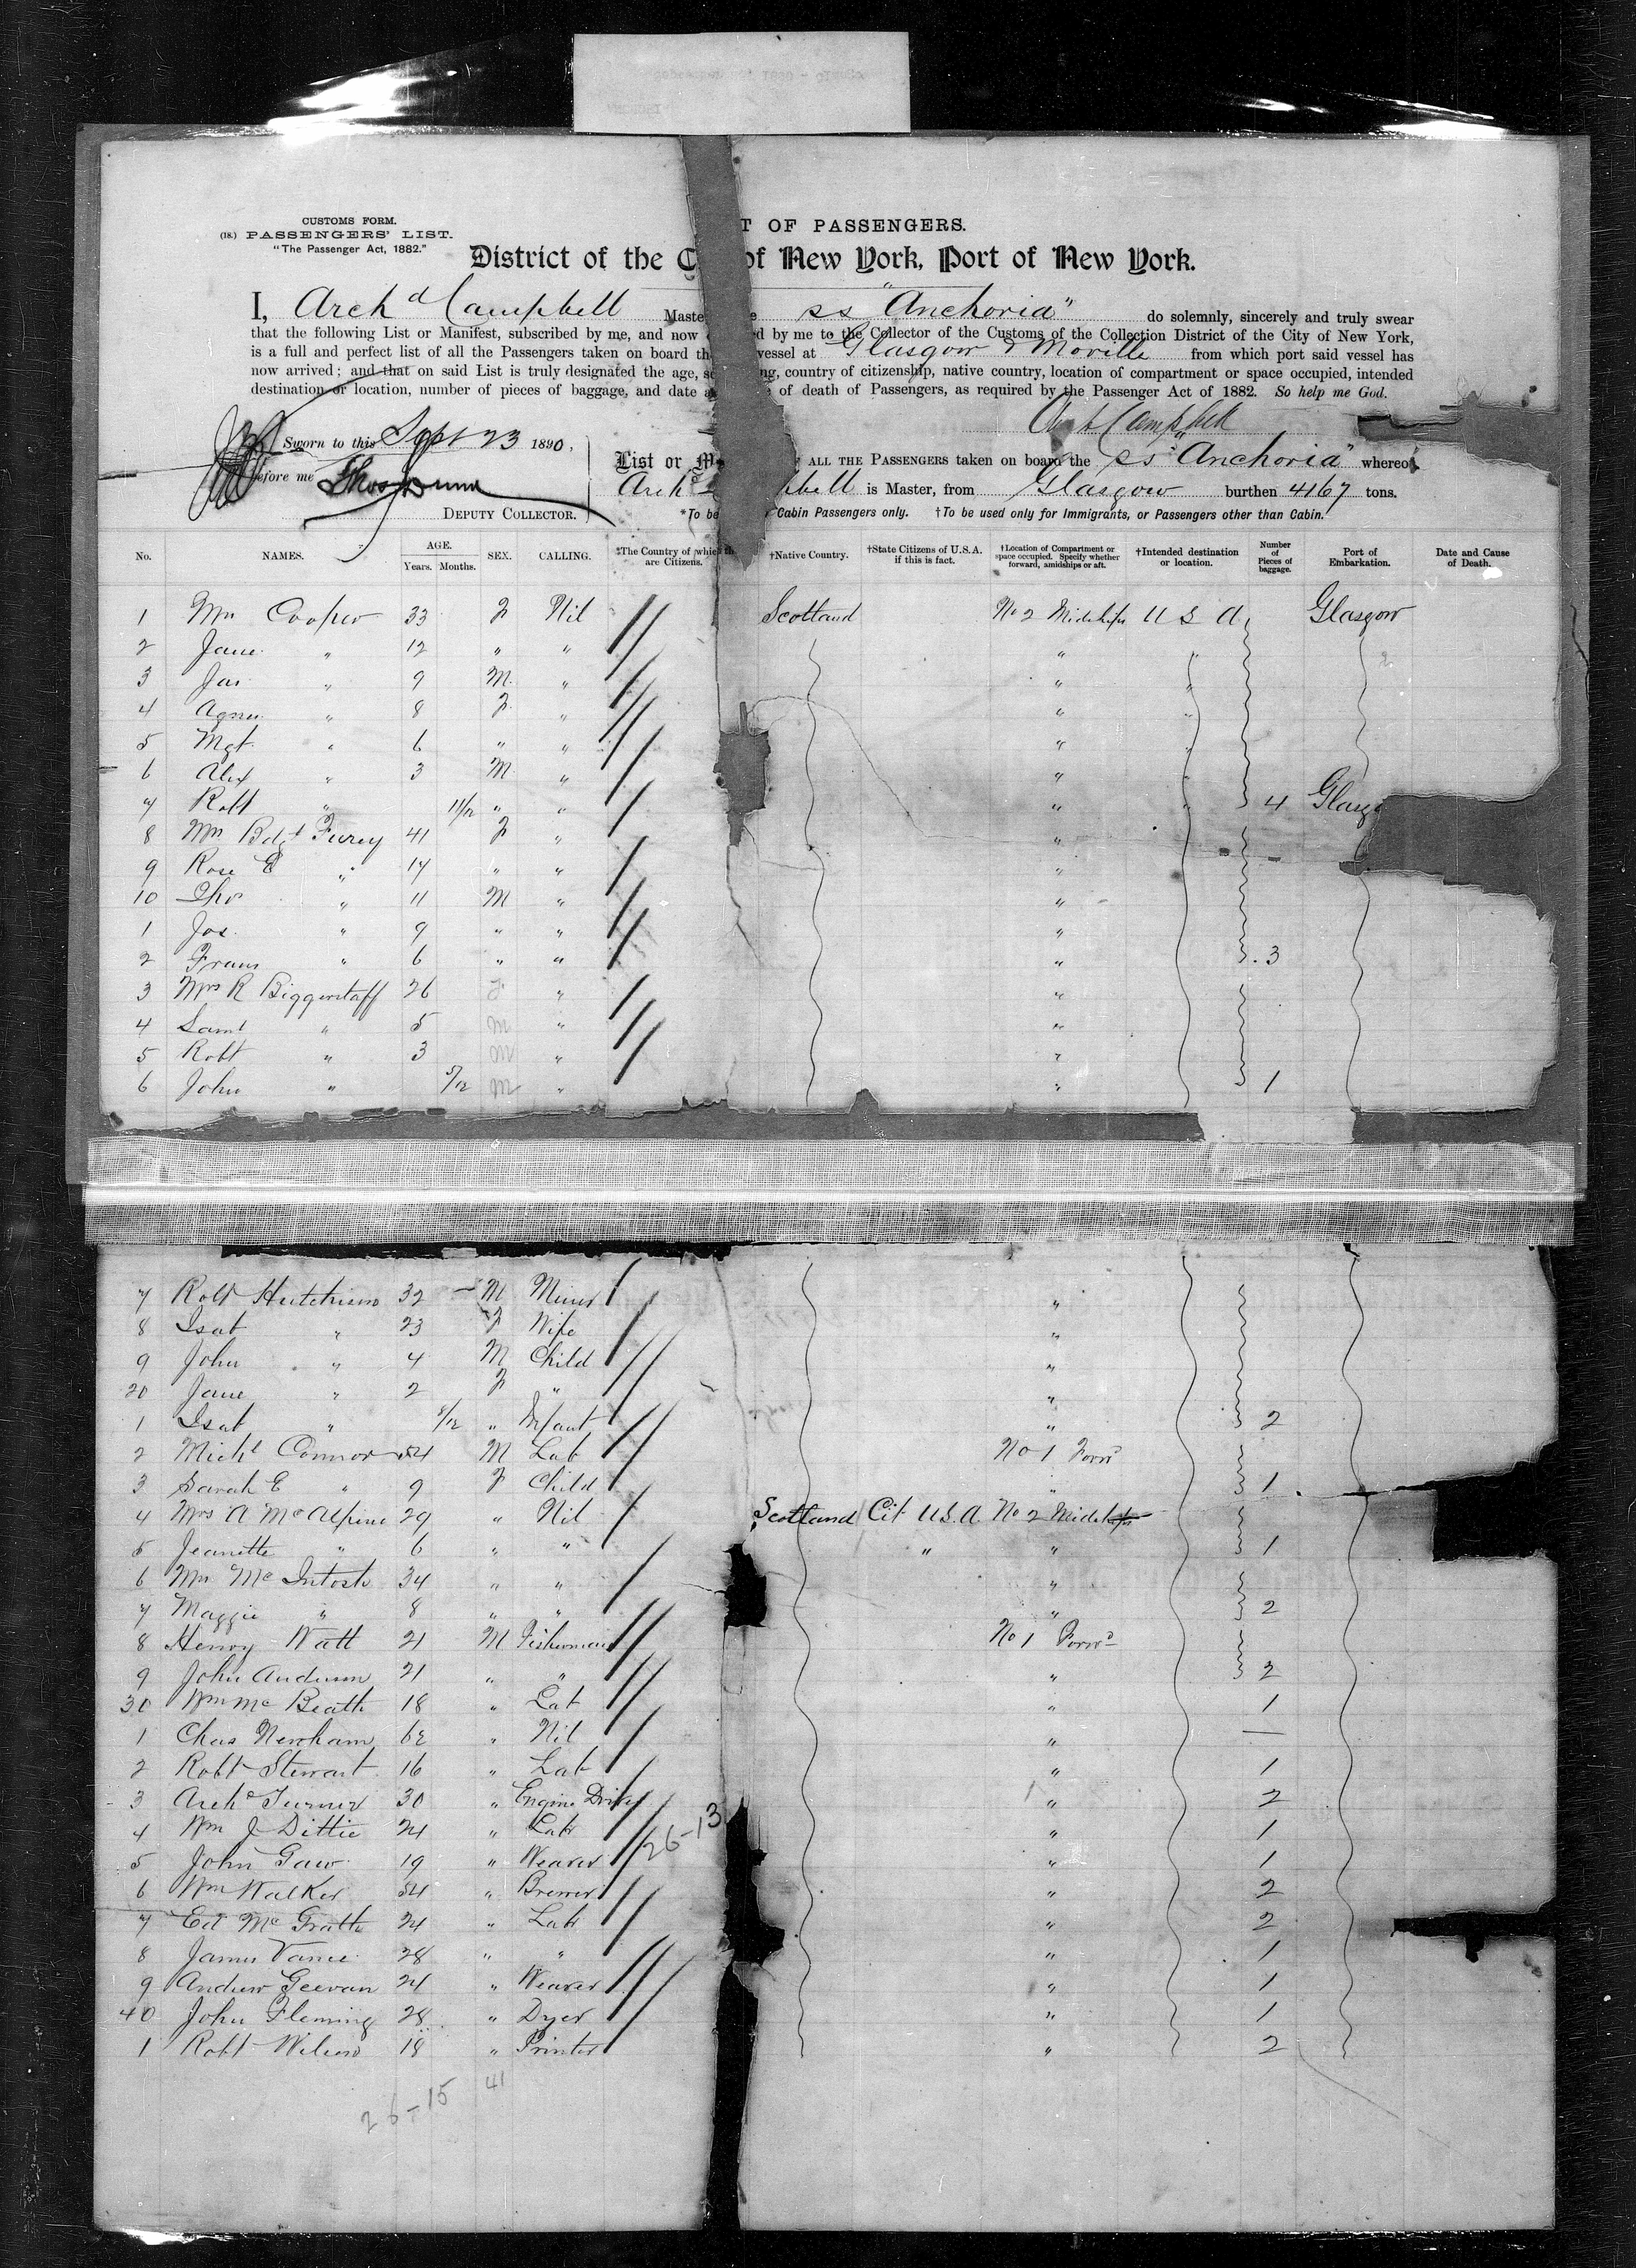 CUSTOMS FORM.
(18.) PASSENGERS' LIST.
"The Passenger Act, 1882."
T OF PASSENGERS.
District of the C of New York, Port of New York.
I, Archd Campbell Maste e ss "Anchoria" do solemnly, sincerely and truly swear
that the following List or Manifest, subscribed by me, and now d by me to the Collector of the Customs of the Collection District of the City of New York,
is a full and perfect list of all the Passengers taken on board th vessel at Glasgow & Moville from which port said vessel has
now arrived; and that on said List is truly designated the age, s ng, country of citizenship, native country, location of compartment or space occupied, intended
destination or location, number of pieces of baggage, and date a of death of Passengers, as required by the Passenger Act of 1882. So help me God.
Arch Campbell
Sworn to this Sept 23 1890,
before me Thos Dunn
DEPUTY COLLECTOR.
List or M ALL THE PASSENGERS taken on board the ss "Anchoria" whereof
Archd bell is Master, from Glasgow burthen 4167 tons.
*To be Cabin Passengers only. †To be used only for Immigrants, or Passengers other than Cabin.
No. NAMES. AGE. Years. Months. SEX. CALLING. *The Country of which th are Citizens. †Native Country. †State Citizens of U.S.A. if this is fact. †Location of Compartment or space occupied. Specify whether forward, amidships or aft. †Intended destination or location. Number of Pieces of baggage. Port of Embarkation. Date and Cause of Death.
1 Mrs Cooper 33 F Nil Scotland No 2 Midships U S A Glasgow
2 Jane " 12 " " " "
3 Jas " 9 M " " "
4 Agnes " 8 F " " "
5 Mgt " 6 " " " "
6 Alex " 3 M " " "
7 Robt " 11/12 " " " " 4 Glasg
8 Mrs Bdgt Furey 41 F " "
9 Rose E " 14 " " "
10 Thos " 11 M " "
1 Jos. " 9 " " "
2 Frans " 6 " " " 3
3 Mrs R Biggerstaff 26 F " "
4 Saml " 5 M " "
5 Robt " 3 M " "
6 John " 5/12 M " " 1
7 Robt Hutchison 32 M Miner "
8 Isab " 23 F Wife "
9 John " 4 M Child "
20 Jane " 2 F " "
1 Isab " 8/12 " Infant " 2
2 Michl Connor M Lab No 1 Forwd
3 Sarah E " 9 F Child " 1
4 Mrs A McAlpine 29 " Nil Scotland Cit U.S.A. No 2 Midships
5 Jeanette " 6 " " " " 1
6 Mrs McIntosh 34 " " "
7 Maggie " 8 " " " 2
8 Henry Watt 21 M Fisherman No 1 Forwd
9 John Anderson 21 " " " 2
30 Wm McBeath 18 " Lab " 1
1 Chas Newham 62 " Nil " —
2 Robt Stewart 16 " Lab " 1
3 Archd Turner 30 " Engine Driver " 2
4 Wm J Dittie 24 " Lab " 1
26-13
5 John Gaw 19 " Weaver " 1
6 Wm Walker 34 " Brewer " 2
7 Ed McGrath 24 " Lab " 2
8 James Vance 28 " " " 1
9 Andrew Geevan 24 " Weaver " 1
40 John Fleming 28 " Dyer " 1
1 Robt Wilson 18 " Printer " 2
26-15 41